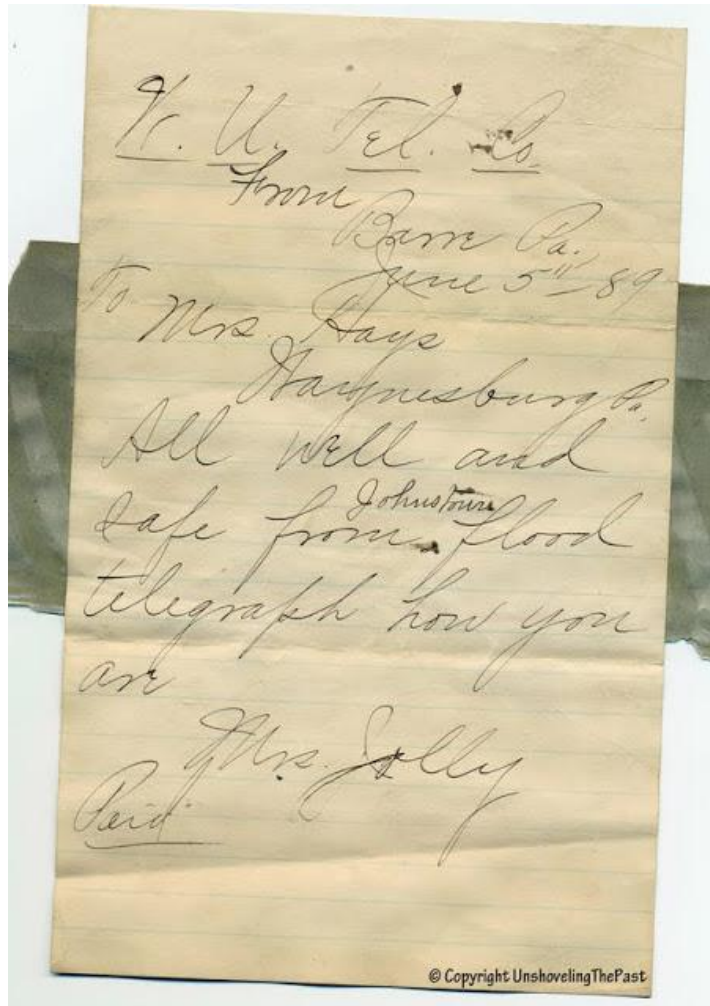 W. U. Tel. Co.
From
Barre Pa.
June 5" 89
To Mrs. Hays
Waynesburg Pa.
All well and
Johnstown
safe from flood
telegraph how you
are
Mrs. Jolly
Paid
© Copyright UnshovelingThePast